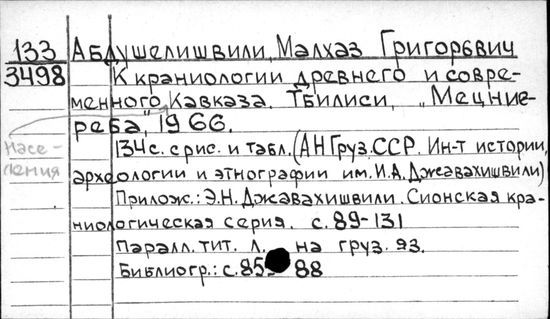 133 Абдушелишвили, Малхаз Григорьевич
3498 К краниологии древнего и совре-
менного Кавказа. Тбилиси, "Мецние-
реба", 1966.
насе-
ления
134 с. с рис. и табл. (АН Груз.ССР. Ин-т истории,
археологии и этнографии им. И.А. Джавахишвили)
Прилож.: Э.Н. Джавахишвили. Сионская кра-
ниологическая серия. с. 89-131
Паралл. тит. л. на груз. яз.
Библиогр.: с. 85 88